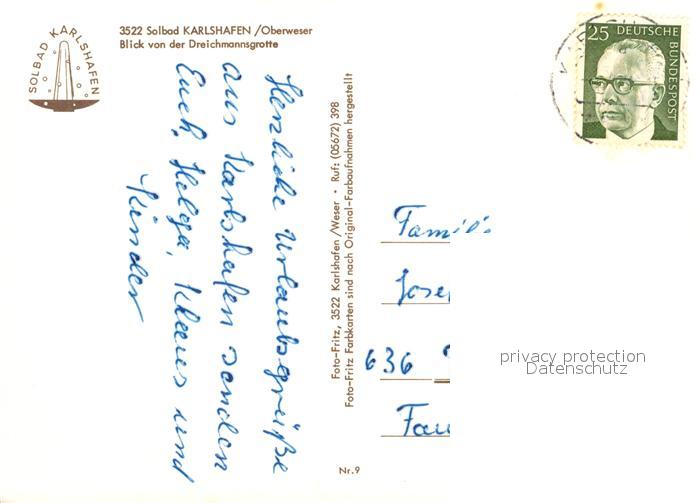 SOLBAD KARLSHAFEN
3522 Solbad KARLSHAFEN /Oberweser
Blick von der Dreichmannsgrotte
Herzliche Urlaubsgrüße
aus Karlshafen senden
Euch, Helga, Klaus und
Kinder
Foto-Fritz, 3522 Karlshafen /Weser • Ruf: (05672) 398
Foto-Fritz Farbkarten sind nach Original-Farbaufnahmen hergestellt
25 DEUTSCHE BUNDESPOST
Famili
Jose
636
Fau
privacy protection
Datenschutz
Nr. 9